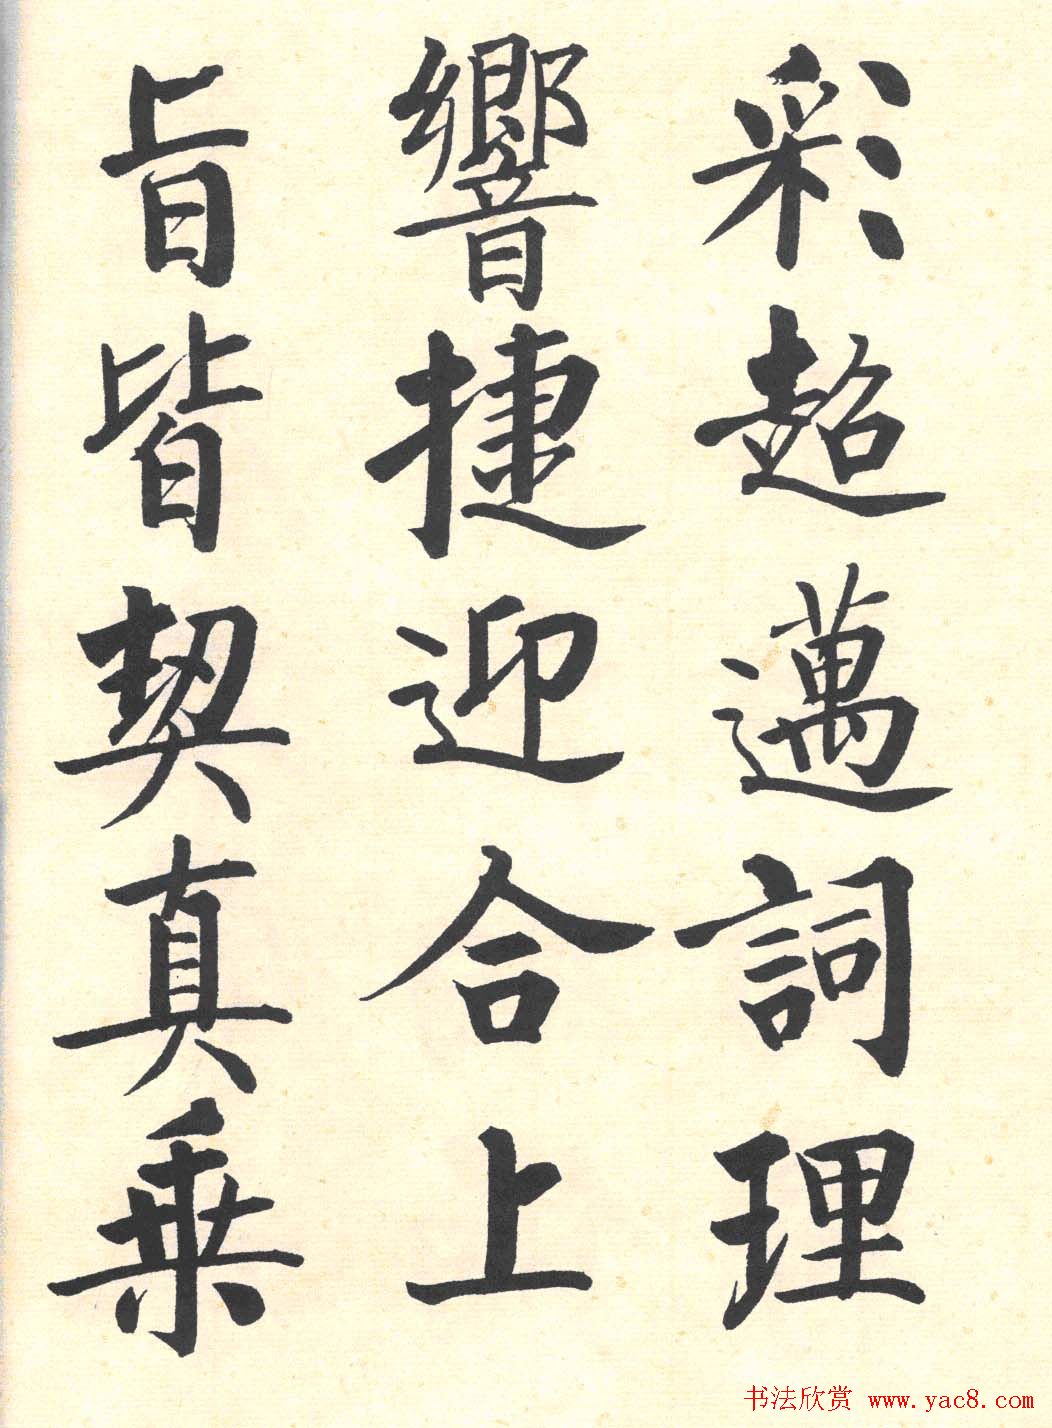 彩超邁詞理
響捷迎合上
旨皆契真乗
书法欣赏 www.yac8.com